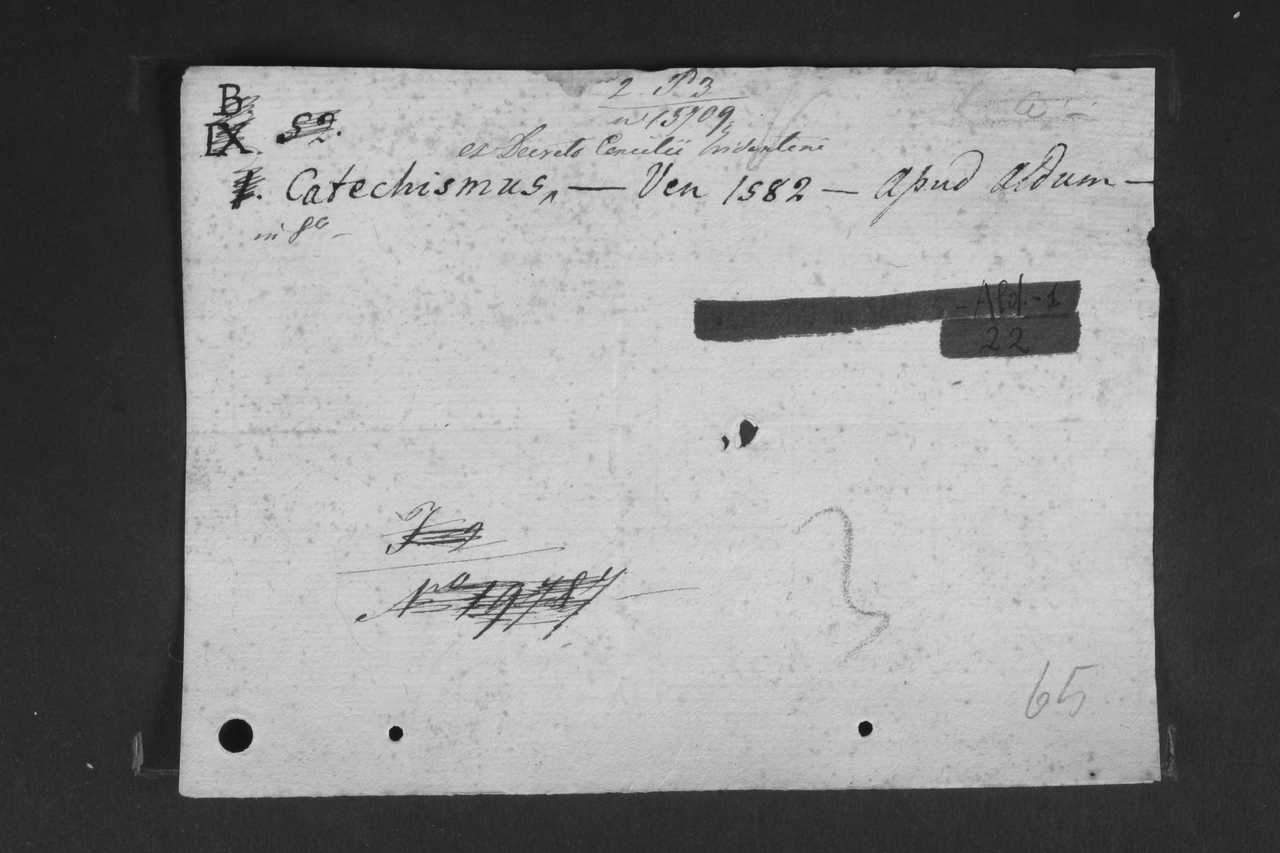 B
2. P 3
IX 52.
nº 13709
ex Decreto Concilii Tridentini
1. Catechismus, — Ven 1582 — apud aldum —
in 8º —
- Ald. - 1
22
F 2
Nº 19787
65